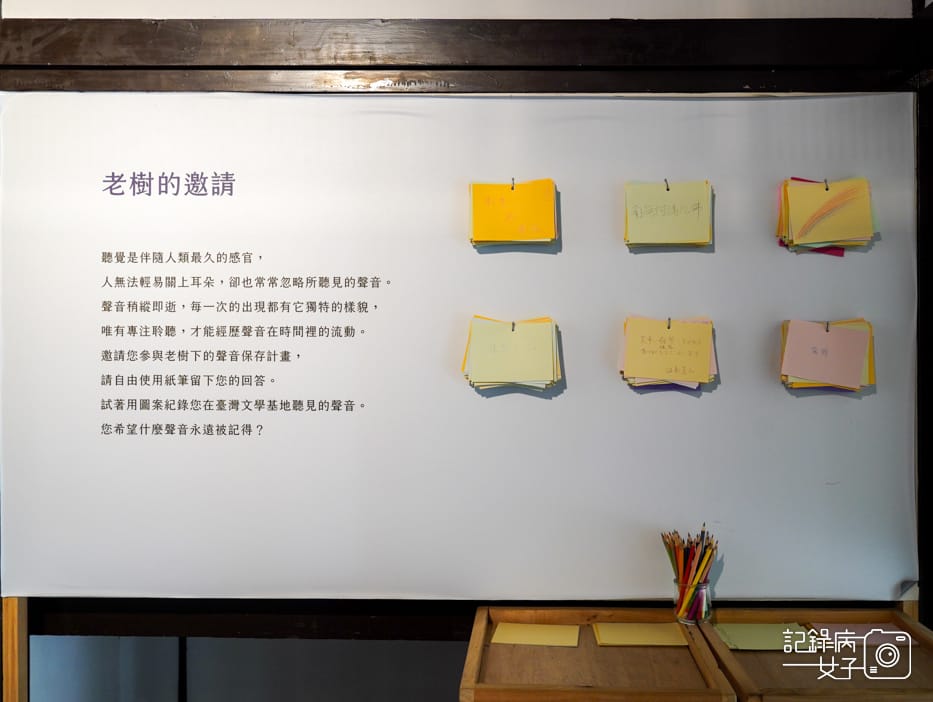 老樹的邀請
聽覺是伴隨人類最久的感官，
人無法輕易關上耳朵，卻也常常忽略所聽見的聲音。
聲音稍縱即逝，每一次的出現都有它獨特的樣貌，
唯有專注聆聽，才能經歷聲音在時間裡的流動。
邀請您參與老樹下的聲音保存計畫，
請自由使用紙筆留下您的回答。
試著用圖案紀錄您在臺灣文學基地聽見的聲音。
您希望什麼聲音永遠被記得？
記錄病
女子